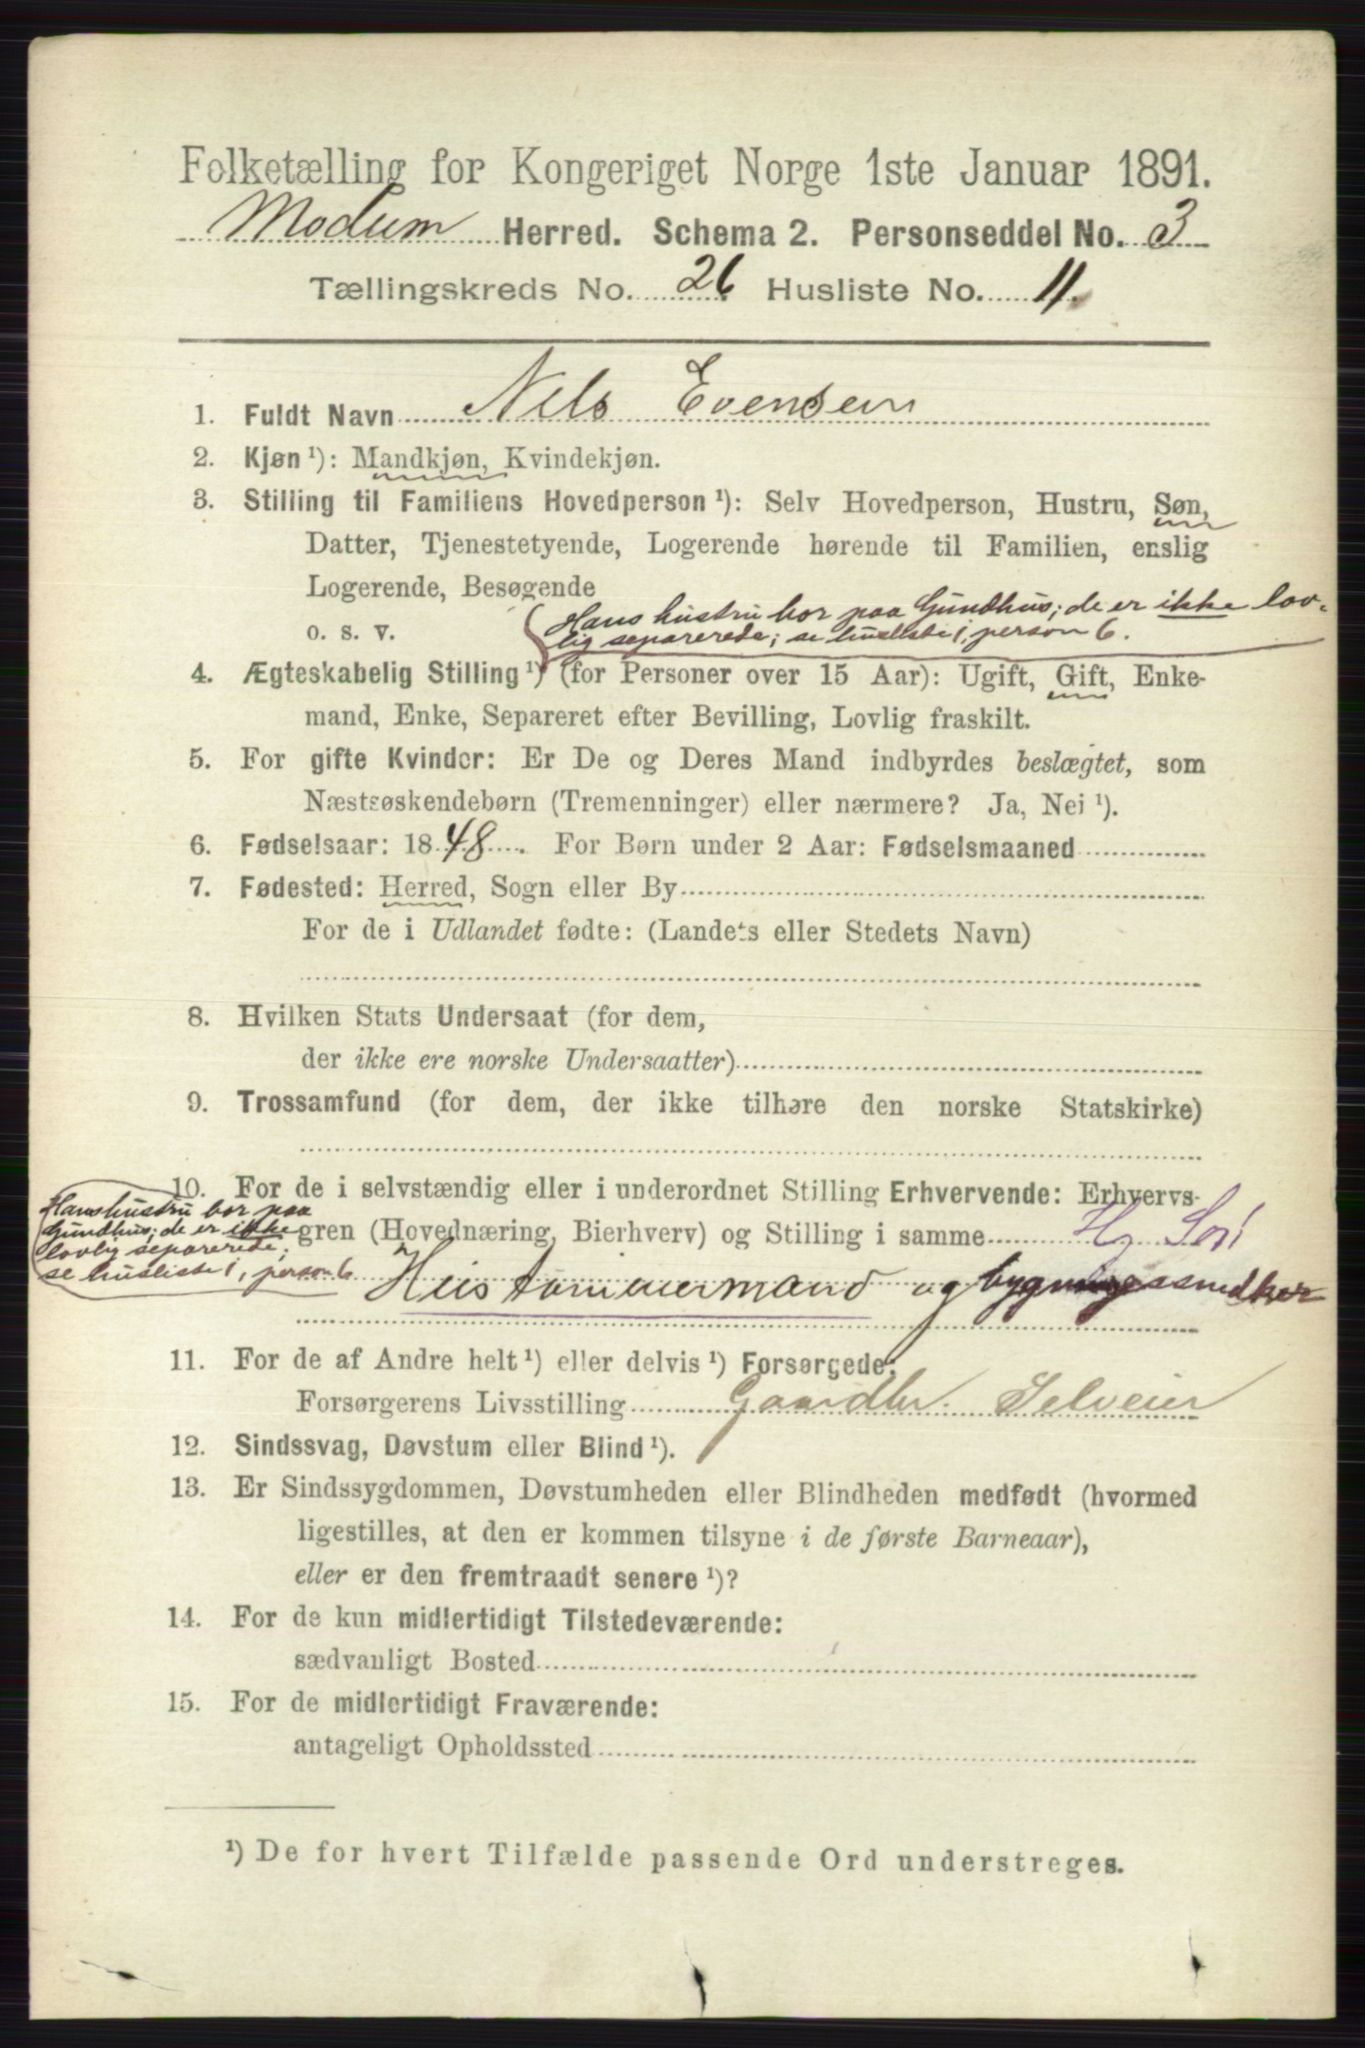 Folketælling for Kongeriget Norge 1ste Januar 1891.
Modum Herred. Schema 2. Personseddel No. 3
Tællingskreds No. 26 Husliste No. 11.
1. Fuldt Navn Nels Evensen
2. Kjøn ¹): Mandkjøn, Kvindekjøn.
3. Stilling til Familiens Hovedperson ¹): Selv Hovedperson, Hustru, Søn,
Datter, Tjenestetyende, Logerende hørende til Familien, enslig
Logerende, Besøgende
o. s. v.
Hans hustru bor paa Gundhus; de er ikke lov-
lig separerede; se husliste 1, person 6.
4. Ægteskabelig Stilling ¹) (for Personer over 15 Aar): Ugift, Gift, Enke-
mand, Enke, Separeret efter Bevilling, Lovlig fraskilt.
5. For gifte Kvinder: Er De og Deres Mand indbyrdes beslægtet, som
Næstsøskendebørn (Tremenninger) eller nærmere? Ja, Nei ¹).
6. Fødselsaar: 1848. For Børn under 2 Aar: Fødselsmaaned
7. Fødested: Herred, Sogn eller By
For de i Udlandet fødte: (Landets eller Stedets Navn)
8. Hvilken Stats Undersaat (for dem,
der ikke ere norske Undersaatter)
9. Trossamfund (for dem, der ikke tilhøre den norske Statskirke)
10. For de i selvstændig eller i underordnet Stilling Erhvervende: Erhvervs-
gren (Hovednæring, Bierhverv) og Stilling i samme
Hans hustru bor paa
Gundhus; de er ikke
lovlig separerede;
se husliste 1, person 6
Hustømmermand og bygningssnedker
11. For de af Andre helt ¹) eller delvis ¹) Forsørgede:
Forsørgerens Livsstilling Gaardbr. Selveier
12. Sindssvag, Døvstum eller Blind ¹).
13. Er Sindssygdommen, Døvstumheden eller Blindheden medfødt (hvormed
ligestilles, at den er kommen tilsyne i de første Barneaar),
eller er den fremtraadt senere ¹)?
14. For de kun midlertidigt Tilstedeværende:
sædvanligt Bosted
15. For de midlertidigt Fraværende:
antageligt Opholdssted
¹) De for hvert Tilfælde passende Ord understreges.